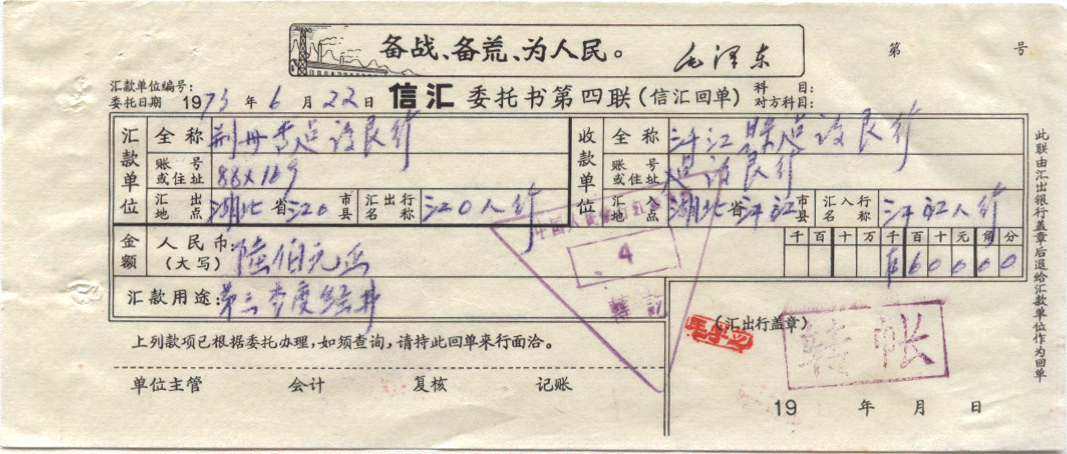 备战、备荒、为人民。 毛泽东
第 号
汇款单位编号:
委托日期 1973年6月22日 信汇 委托书第四联(信汇回单) 科 目:
对方科目:
汇款单位 全称 设银行 收款单位 全称 江 设银行
账号或住址 88×169 账号或住址 设银行
汇出地点 湖北省江 市县 汇出行名称 江 人行 汇入地点 湖北省 江 市县 汇入行名称 江人行
金额 人民币:(大写) 陆佰元正 千百十万千百十元角分
¥60000
汇款用途: 第三季度经费
上列款项已根据委托办理,如须查询,请持此回单来行面洽。
单位主管 会计 复核 记账
(汇出行盖章)
19 年 月 日
此联由汇出银行盖章后退给汇款单位作为回单
中国人民
4
转讫
转帐